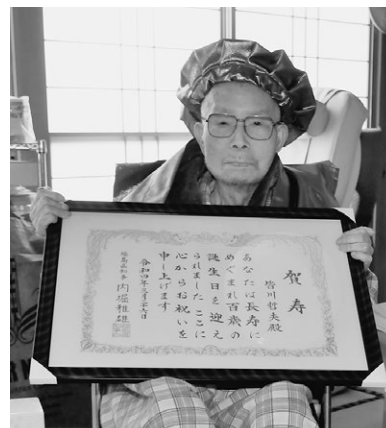 賀寿
皆川哲夫殿
あなたは長寿に
めぐまれ百歳の
誕生日を迎え
られました ここに
心からお祝いを
申し上げます
令和四年三月二十六日
福島県知事 内堀雅雄